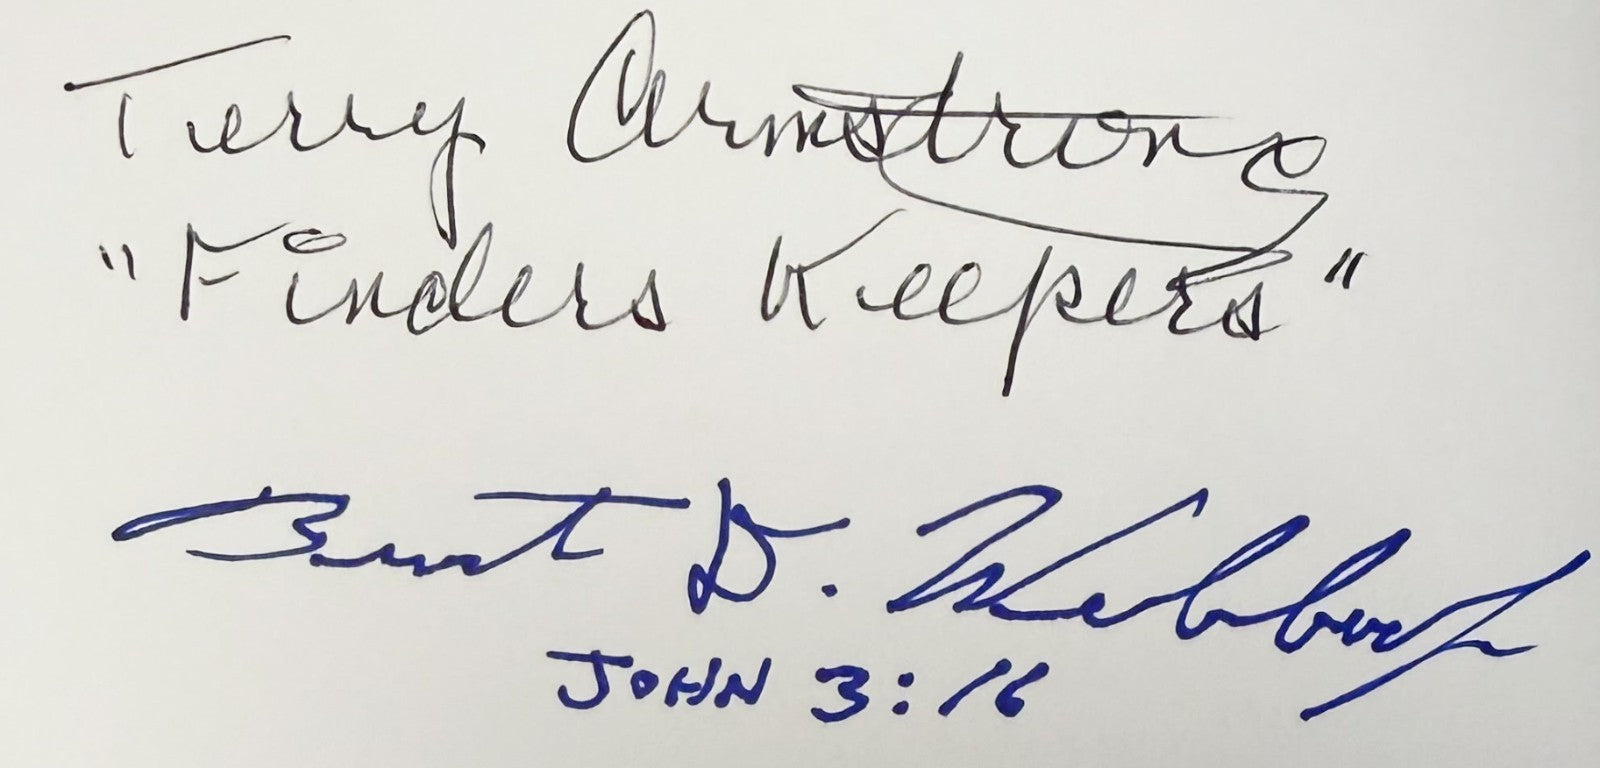 Terry Armstrong
"Finders Keepers"
Burt D.
JOHN 3:16